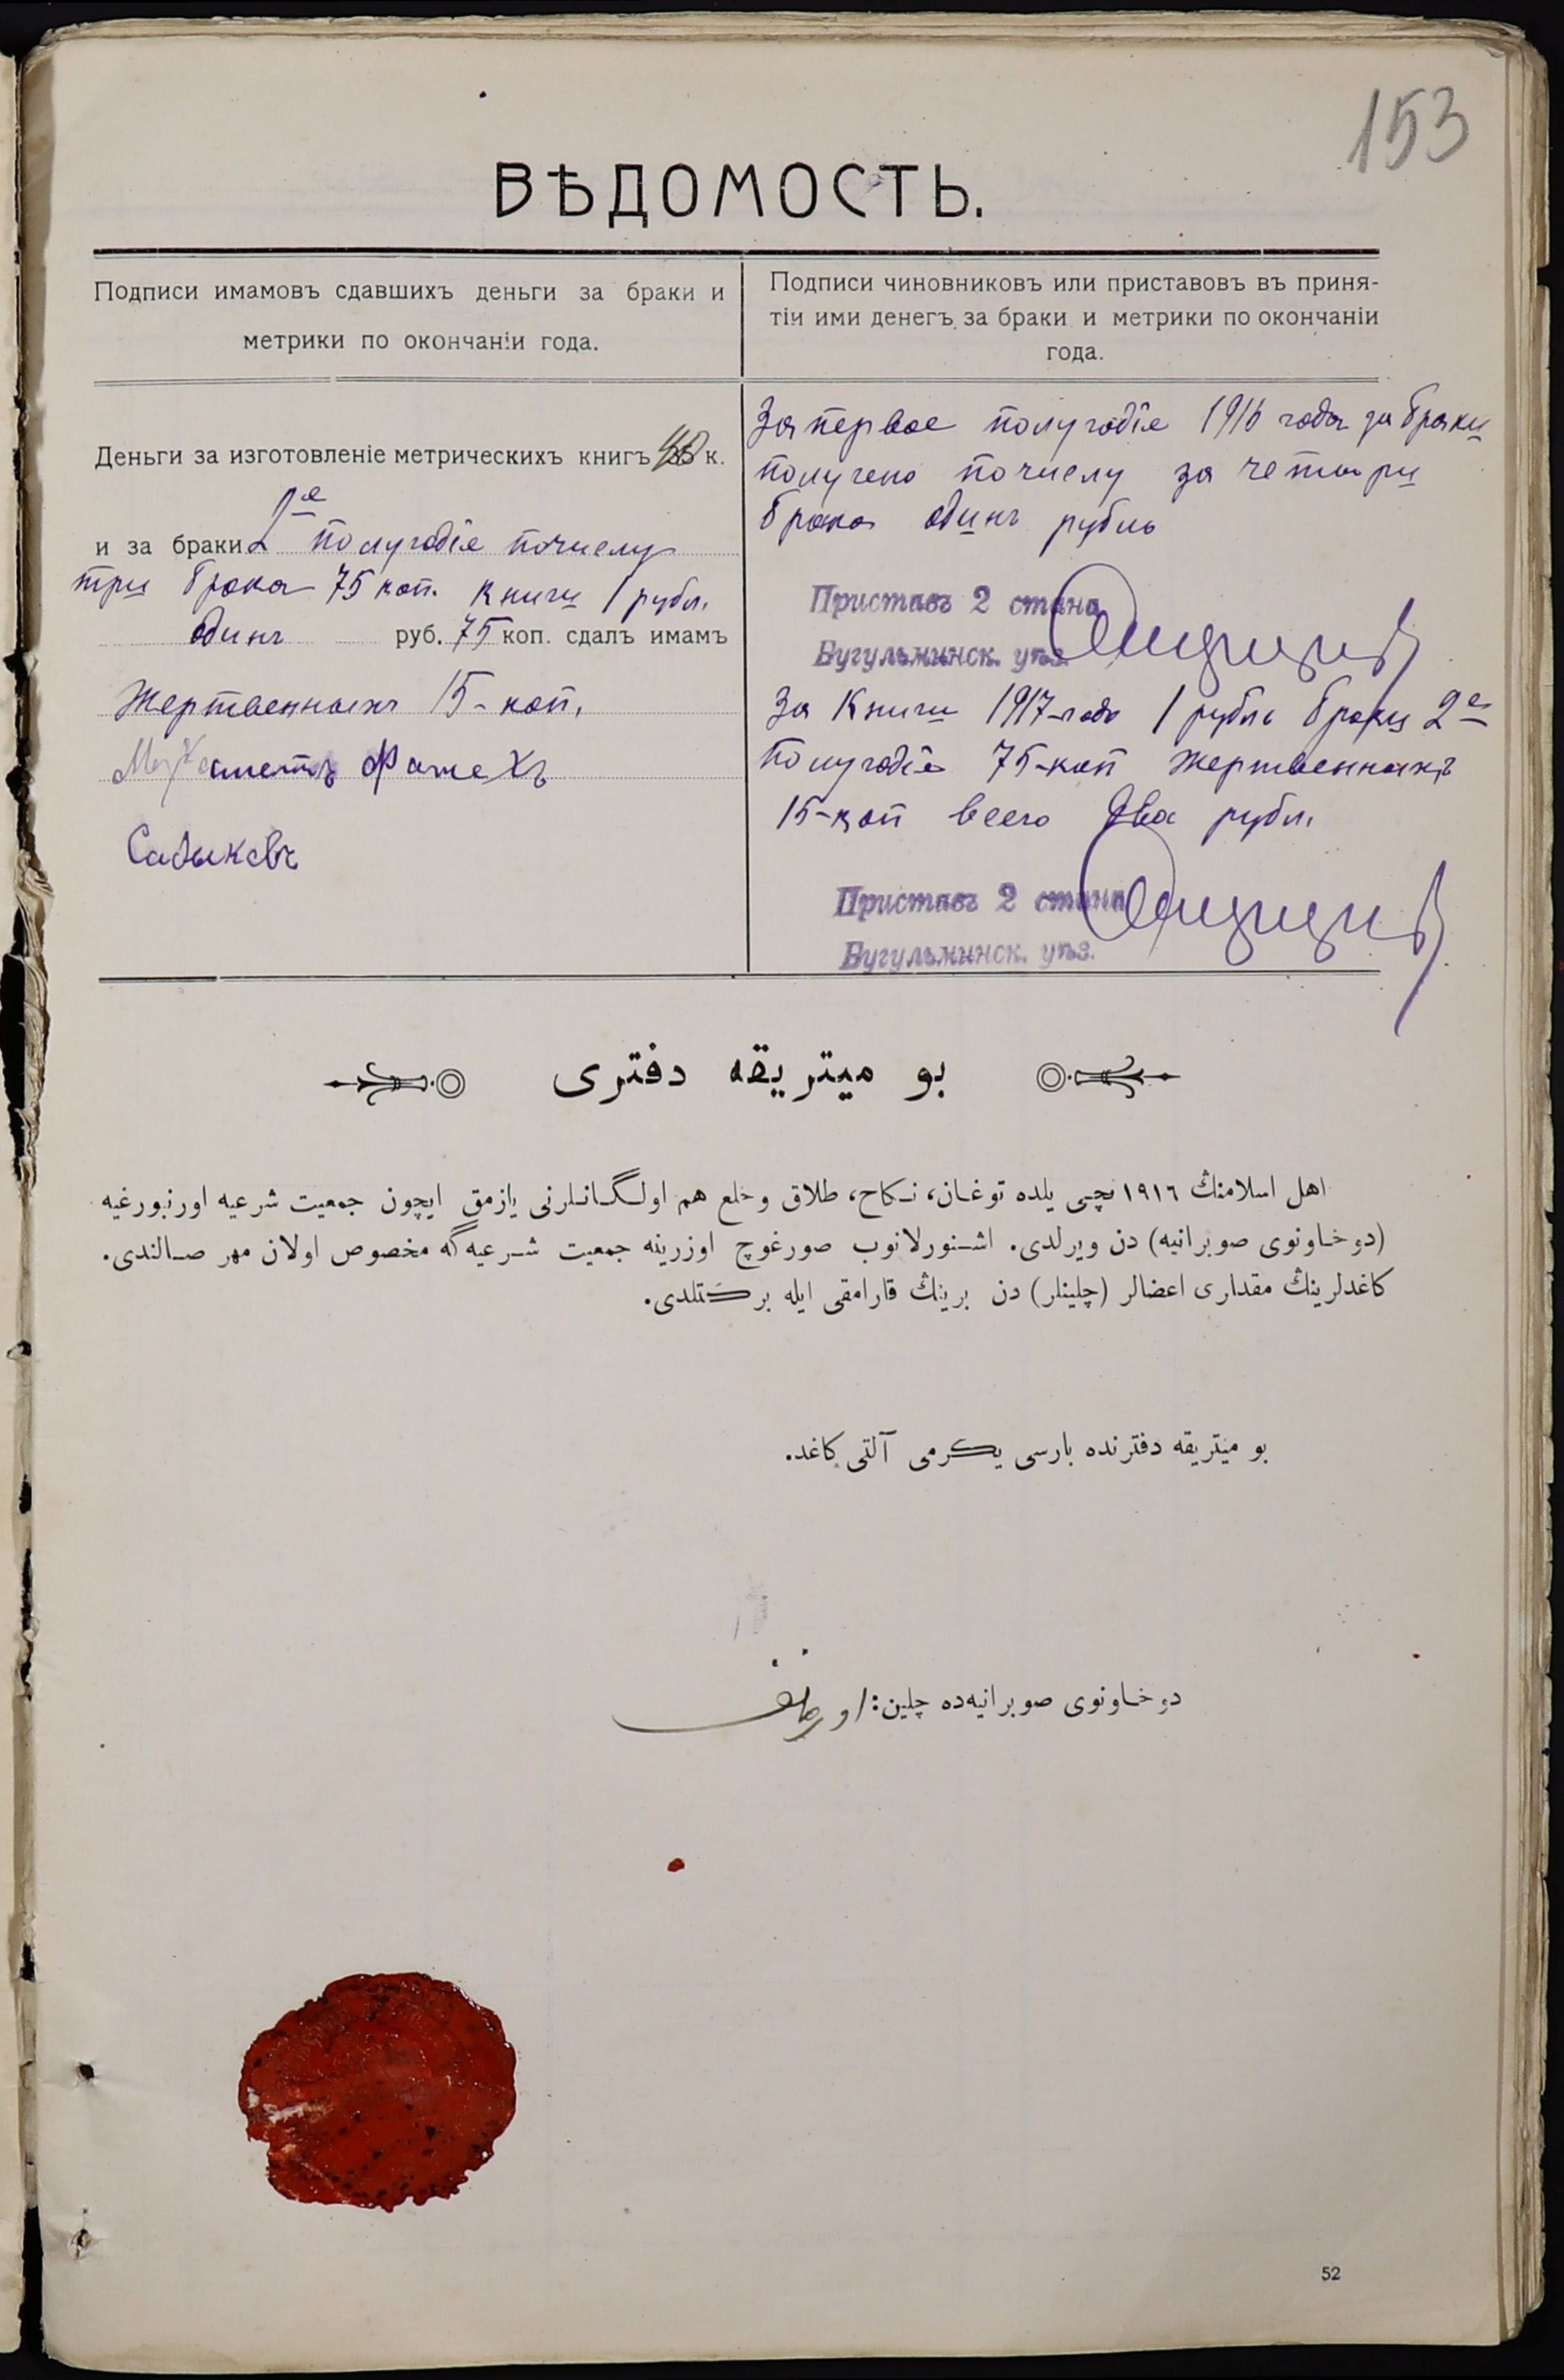 153
ВѢДОМОСТЬ.
Подписи имамовъ сдавшихъ деньги за браки и
метрики по окончаніи года.
Подписи чиновниковъ или приставовъ въ приня-
тіи ими денегъ за браки и метрики по окончаніи
года.
Деньги за изготовленіе метрическихъ книгъ к.
2е
и за браки полугодіе почислу
три брака 75 коп. книги 1 рубл.
одинъ руб. 75 коп. сдалъ имамъ
Жертвенныхъ 15-коп.
Мухаметъ Фатехъ
Садыковъ
За первое полугодіе 1916 года за браки
получено почислу за четыри
брака одинъ рубль
Приставъ 2 стана
Бугульминск. уѣз.
За Книги 1917-года 1 рубль браки 2е
полугодіе 75-коп Жертвенныхъ
15-коп всего два рубл.
Приставъ 2 стана
Бугульминск. уѣз.
بو ميتريقه دفترى
اهل اسلامنڭ ١٩١٦ نچى يلده توغان، نكاح، طلاق وخلع هم اولگانلرنى يازمق ايچون جمعيت شرعيه اورنبورغيه
(دوخاونوى صوبرانيه) دن ويرلدى. اشنورلانوب صورغوچ اوزرينه جمعيت شرعيه‌گه مخصوص اولان مهر صالندى.
كاغدلرينڭ مقدارى اعضالر (چلينلر) دن برينڭ قارامقى ايله بركتلدى.
بو ميتريقه دفترنده بارسى يكرمى آلتى كاغد.
دوخاونوى صوبرانيه‌ده چلين:
52